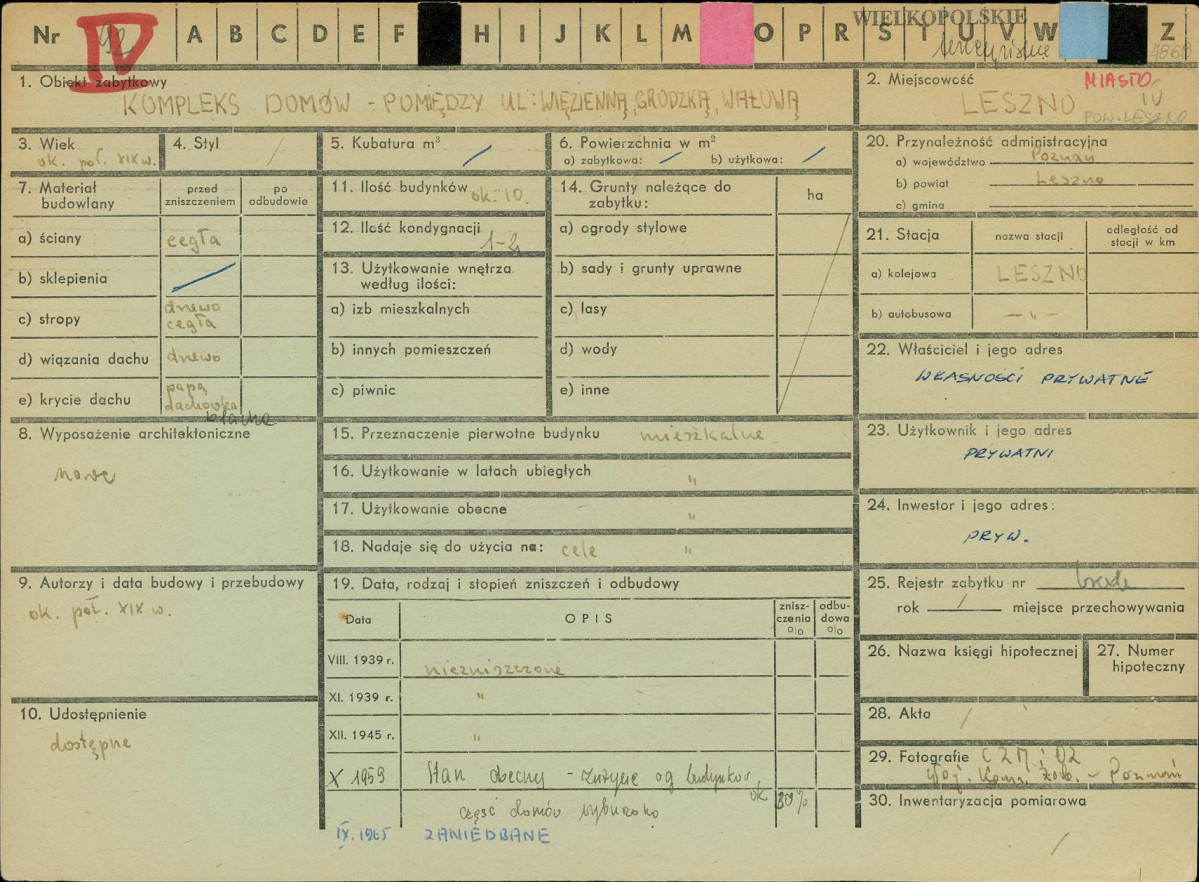 Nr 92 IV A B C D E F H I J K L M O P R S T U V W Z
WIELKOPOLSKIE
1. Obiekt zabytkowy
KOMPLEKS DOMÓW - POMIĘDZY UL: WIĘZIENNĄ, GRODZKĄ, WAŁOWĄ
2. Miejscowość MIASTO
LESZNO IV
POW. LESZNO
3. Wiek
ok. poł. XIX w.
4. Styl /
5. Kubatura m³
6. Powierzchnia w m²
a) zabytkowa: / b) użytkowa: /
7. Materiał budowlany
przed zniszczeniem
po odbudowie
a) ściany cegła
b) sklepienia /
c) stropy drewo
cegła
d) wiązania dachu drewo
e) krycie dachu papą
dachówka
blacha
8. Wyposażenie architektoniczne
nowe
9. Autorzy i data budowy i przebudowy
ok. poł. XIX w.
10. Udostępnienie
dostępne
11. Ilość budynków ok. 10.
12. Ilość kondygnacji 1-2
13. Użytkowanie wnętrza
według ilości:
a) izb mieszkalnych
b) innych pomieszczeń
c) piwnic
14. Grunty należące do
zabytku:
ha
a) ogrody stylowe
b) sady i grunty uprawne
c) lasy
d) wody
e) inne
15. Przeznaczenie pierwotne budynku mieszkalne
16. Użytkowanie w latach ubiegłych "
17. Użytkowanie obecne "
18. Nadaje się do użycia na: cele "
19. Data, rodzaj i stopień zniszczeń i odbudowy
Data
OPIS
znisz-
czenia
%
odbu-
dowa
%
VIII. 1939 r. niezniszczone
XI. 1939 r. "
XII. 1945 r. "
X 1959 Stan obecny - zużycie og budynków
ok 30%
część domów wyburzono
IX. 1965 ZANIEDBANE
20. Przynależność administracyjna
a) województwo Poznań
b) powiat Leszno
c) gmina
21. Stacja
nazwa stacji
odległość od
stacji w km
a) kolejowa LESZNO
b) autobusowa — " —
22. Właściciel i jego adres
WŁASNOŚCI PRYWATNE
23. Użytkownik i jego adres
PRYWATNI
24. Inwestor i jego adres:
PRYW.
25. Rejestr zabytku nr
rok / miejsce przechowywania
26. Nazwa księgi hipotecznej
27. Numer
hipoteczny
28. Akta /
29. Fotografie
Woj. Kons. Zab. - Poznań
30. Inwentaryzacja pomiarowa
/